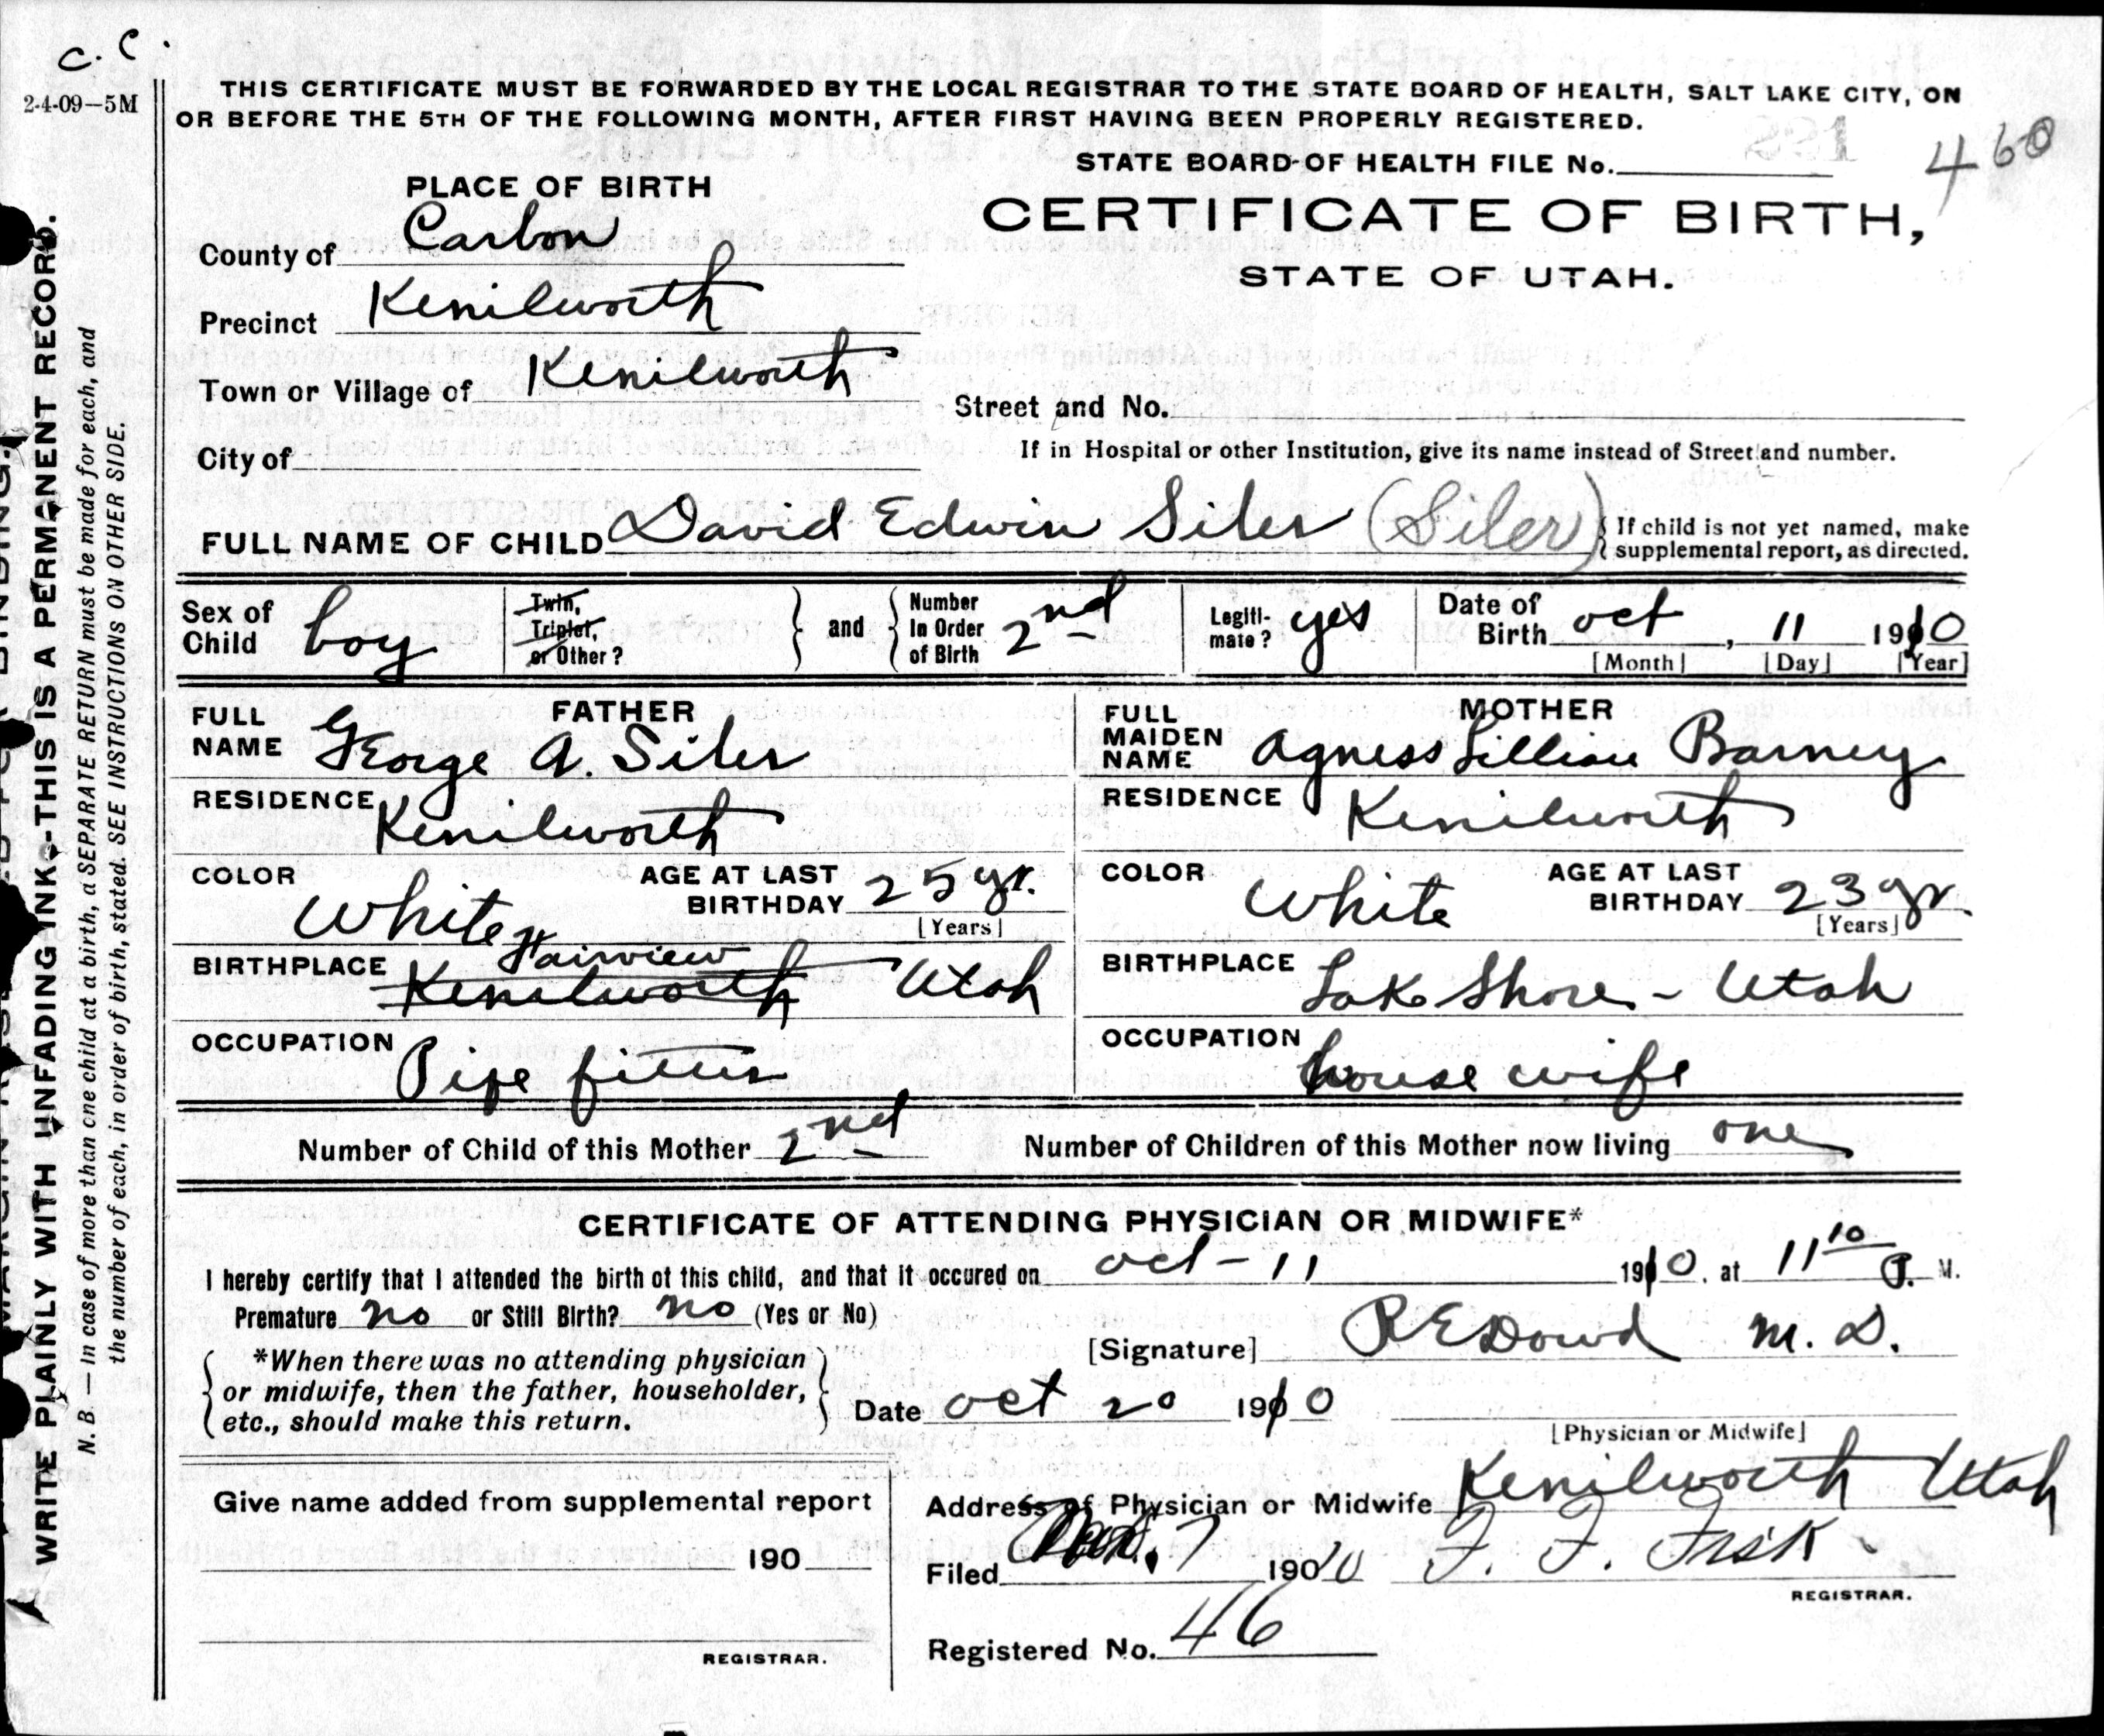 C. C.
2-4-09—5M
THIS CERTIFICATE MUST BE FORWARDED BY THE LOCAL REGISTRAR TO THE STATE BOARD OF HEALTH, SALT LAKE CITY, ON
OR BEFORE THE 5TH OF THE FOLLOWING MONTH, AFTER FIRST HAVING BEEN PROPERLY REGISTERED.
STATE BOARD OF HEALTH FILE No. 460
PLACE OF BIRTH
CERTIFICATE OF BIRTH,
STATE OF UTAH.
County of Carbon
Precinct Kenilworth
Town or Village of Kenilworth
Street and No.
City of
If in Hospital or other Institution, give its name instead of Street and number.
FULL NAME OF CHILD David Edwin Siler (Siler) { If child is not yet named, make
supplemental report, as directed.
Sex of Child boy
Twin, Triplet, or Other? } and { Number In Order of Birth 2nd
Legiti-mate? yes
Date of Birth oct, 11 1910
[Month] [Day] [Year]
FATHER
FULL NAME George A. Siler
RESIDENCE Kenilworth
COLOR White
AGE AT LAST BIRTHDAY 25 yr.
[Years]
BIRTHPLACE Fairview Kenilworth Utah
OCCUPATION Pipe fitter
MOTHER
FULL MAIDEN NAME Agness Lillian Barney
RESIDENCE Kenilworth
COLOR White
AGE AT LAST BIRTHDAY 23 yr.
[Years]
BIRTHPLACE Lake Shore - Utah
OCCUPATION house wife
Number of Child of this Mother 2nd
Number of Children of this Mother now living one
CERTIFICATE OF ATTENDING PHYSICIAN OR MIDWIFE*
I hereby certify that I attended the birth of this child, and that it occured on oct-11 1910, at 11 10 P. M.
Premature no or Still Birth? no (Yes or No)
[Signature] R E Dowd M. D.
*When there was no attending physician
or midwife, then the father, householder,
etc., should make this return.
Date oct 20 1910
[Physician or Midwife]
Give name added from supplemental report
190
REGISTRAR.
Address of Physician or Midwife Kenilworth Utah
Filed 7 19010 F. F. Fisk
REGISTRAR.
Registered No. 46
WRITE PLAINLY WITH UNFADING INK—THIS IS A PERMANENT RECORD.
N. B.— In case of more than one child at a birth, a SEPARATE RETURN must be made for each, and
the number of each, in order of birth, stated. SEE INSTRUCTIONS ON OTHER SIDE.